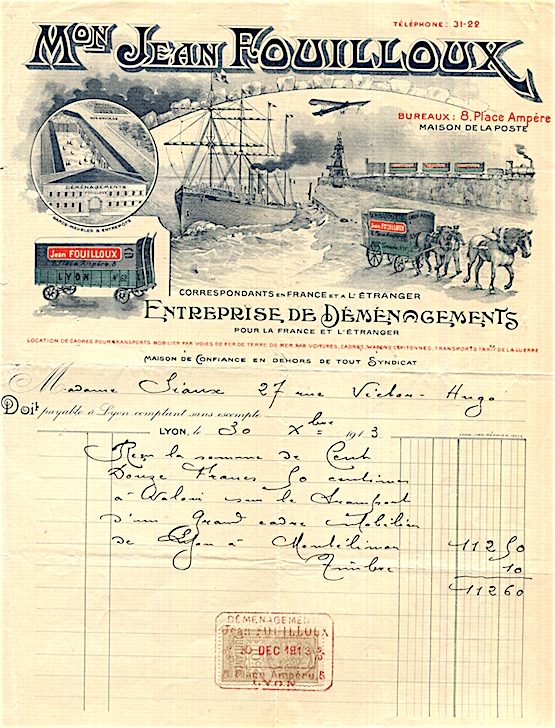 TÉLÉPHONE: 31-22
MON JEAN FOUILLOUX
BUREAUX: 8, Place Ampère
MAISON DE LA POSTE
DÉMÉNAGEMENTS
FOUILLOUX
GARDE-MEUBLES & ENTREPÔTS
Jean FOUILLOUX
Place Ampère, 8
LYON
Jean FOUILLOUX
CORRESPONDANTS EN FRANCE ET A L'ÉTRANGER
ENTREPRISE DE DÉMÉNAGEMENTS
POUR LA FRANCE ET L'ÉTRANGER
LOCATION DE CADRES POUR TRANSPORTS MOBILIER PAR VOIES DE FER DE TERRE DE MER, PAR VOITURES, CADRES, WAGONS CAPITONNÉS, TRANSPORTS DE LA GUERRE
MAISON DE CONFIANCE EN DEHORS DE TOUT SYNDICAT
Madame Siaux 27 rue Victor Hugo
Doit payable à Lyon comptant sans escompte
LYON, le 30 Xbre 1913
Reçu la somme de Cent
Douze Francs 50 centimes
à Valoir sur le transport
d'un Grand cadre Mobilier
de Lyon à Montélimar 112 50
Timbre 10
112 60
DÉMÉNAGEMENTS
Jean FOUILLOUX
30 DEC 1913
8 Place Ampère, 8
LYON